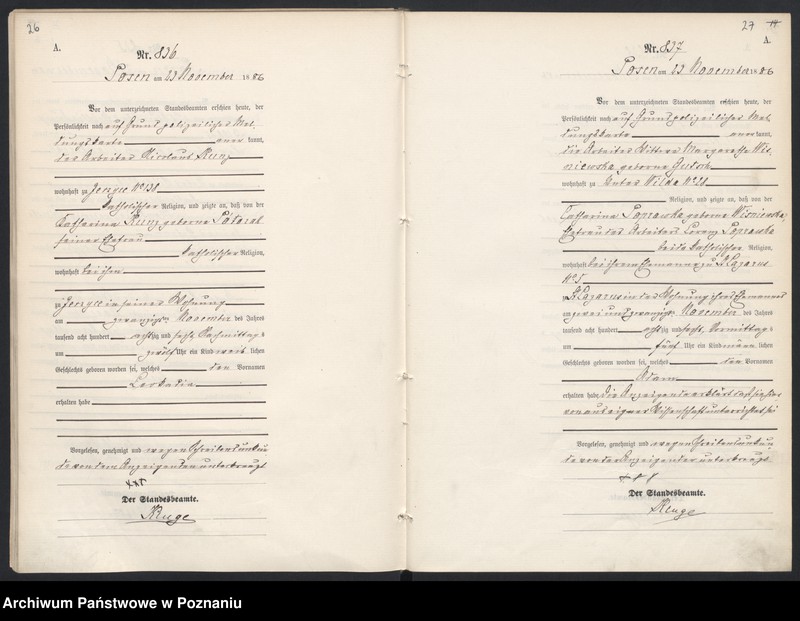 26
A.
Nr. 836
Posen am 23 November 1886
Vor dem unterzeichneten Standesbeamten erschien heute, der
Persönlichkeit nach auf Grund polizeilicher Mel-
dungskarte kannt,
der Arbeiter Nicolaus Kunz
wohnhaft zu Jerzyce No 130
katholischer Religion, und zeigte an, daß von der
Catharina Kunz geborne
seiner Ehefrau
katholischer Religion,
wohnhaft bei ihm
zu Jerzyce in seiner Wohnung
am zwanzigsten November des Jahres
tausend acht hundert achtzig und sechs, Nachmittags
um zwölf Uhr ein Kind weib lichen
Geschlechts geboren worden sei, welches den Vornamen
Leokadia
erhalten habe
Vorgelesen, genehmigt und wegen Schreibensunkun-
de von dem Anzeigenden unterkreuzt
xxx
Der Standesbeamte.
Kluge
27
A.
Nr. 837
Posen am 23 November 1886
Vor dem unterzeichneten Standesbeamten erschien heute, der
Persönlichkeit nach auf Grund polizeilicher Mel-
dungskarte kannt,
die Arbeiter Wittwe Margarethe Wis-
niewska geborne
wohnhaft zu Unter Wilda No
Religion, und zeigte an, daß von der
Catharina Poprawska geborne Wisniewska,
Ehefrau des Arbeiters Lorenz Poprawski
beide katholischer Religion,
wohnhaft bei ihrem Ehemanne zu St Lazarus
No 5
zu St Lazarus in der Wohnung ihres Ehemannes
am zwei und zwanzigsten November des Jahres
tausend acht hundert achtzig und sechs, Vormittags
um fünf Uhr ein Kind männ lichen
Geschlechts geboren worden sei, welches den Vornamen
Adam
erhalten habe. Die Anzeigende erklärt daß sie
von aus eigner Wissenschaft unterrichtet sei
Vorgelesen, genehmigt und wegen Schreibensunkun-
de von der Anzeigenden unterkreuzt
xxx
Der Standesbeamte.
Kluge
Archiwum Państwowe w Poznaniu